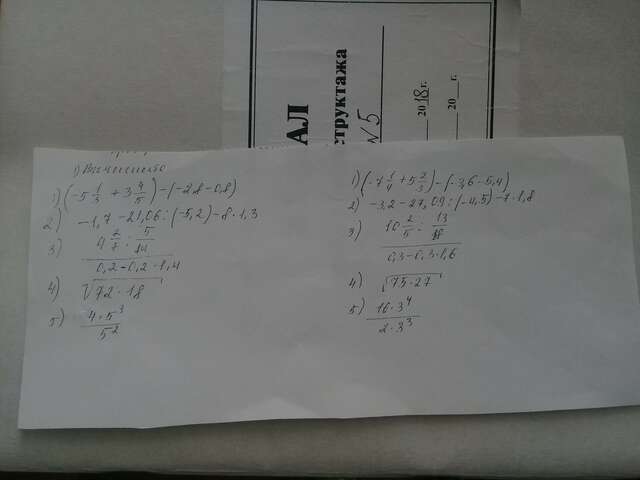 АЛ
структажа
N 5
2018 г.
20 г.
1) Вычислить
1) (-5 1/3 + 3 4/5) - (-2,8 - 0,8)
2) -1,7 - 21,06 : (-5,2) - 8 · 1,3
3) 4 2/7 · 5/14
0,2 - 0,2 · 1,4
4) √72 · 18
5) 4 · 5³
5²
1) (-7 1/4 + 5 2/3) - (-3,6 - 5,4)
2) -3,2 - 27,09 : (-4,5) - 7 · 1,8
3) 10 2/5 : 13/18
0,3 - 0,3 · 1,6
4) √75 · 27
5) 16 · 3⁴
2 · 3³